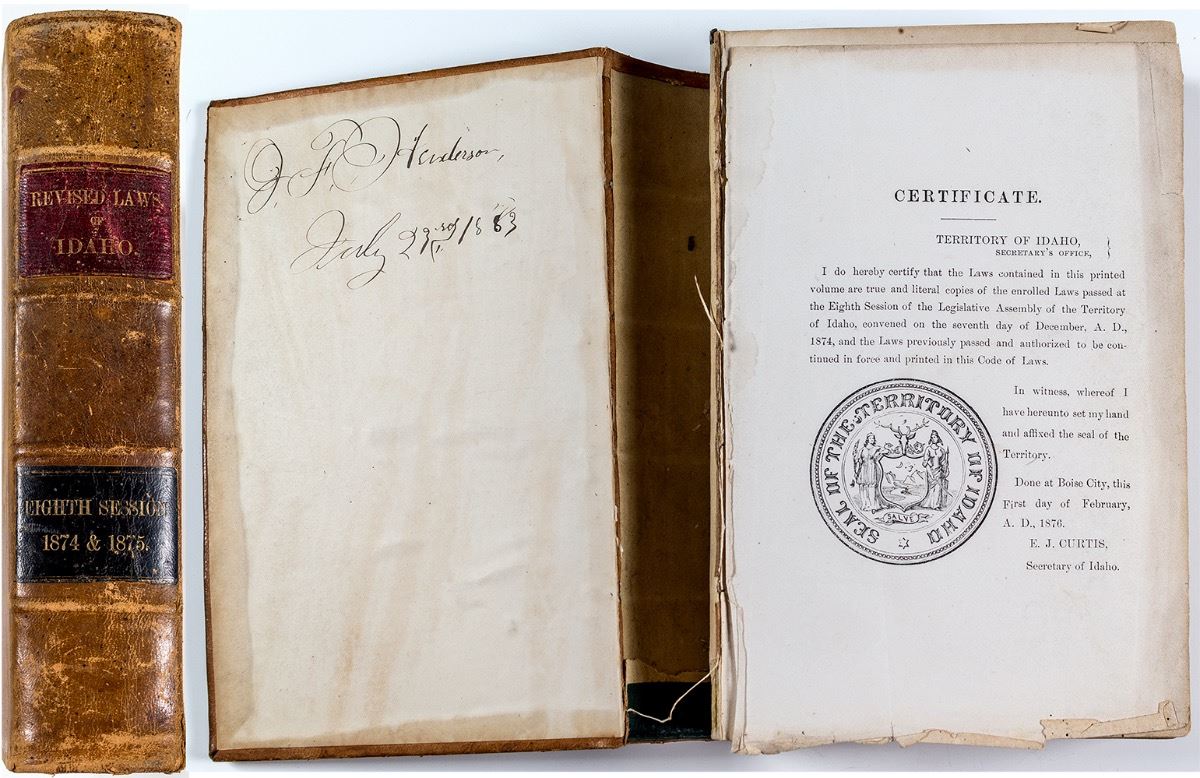 REVISED LAWS
OF
IDAHO.
EIGHTH SESSION
1874 & 1875.
J. F. Henderson,
July 1883
CERTIFICATE.
TERRITORY OF IDAHO, }
SECRETARY'S OFFICE,
I do hereby certify that the Laws contained in this printed
volume are true and literal copies of the enrolled Laws passed at
the Eighth Session of the Legislative Assembly of the Territory
of Idaho, convened on the seventh day of December, A. D.,
1874, and the Laws previously passed and authorized to be con-
tinued in force and printed in this Code of Laws.
SEAL OF THE TERRITORY OF IDAHO
SALVE
In witness, whereof I
have hereunto set my hand
and affixed the seal of the
Territory.
Done at Boise City, this
First day of February,
A. D., 1876.
E. J. CURTIS,
Secretary of Idaho.